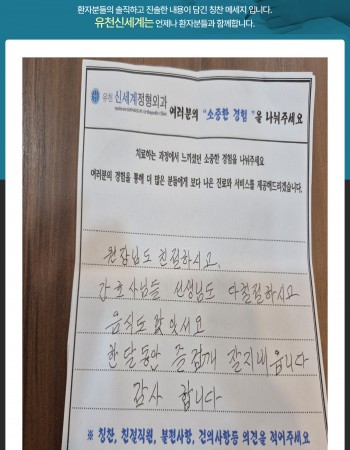 환자분들의 솔직하고 진솔한 내용이 담긴 칭찬 메세지 입니다.
유천신세계는 언제나 환자분들과 함께합니다.
유천 신세계정형외과
여러분의 "소중한 경험"을 나눠주세요
치료하는 과정에서 느끼셨던 소중한 경험을 나눠주세요
여러분의 경험을 통해 더 많은 분들에게 보다 나은 진료와 서비스를 제공해드리겠습니다.
원장님도 친절하시고,
간호사님들 선생님도 다철절하시고
음식도 맛잇서요
한달동안 즐겁개 잘지내읍니다
감사 합니다
※ 칭찬, 친절직원, 불편사항, 건의사항등 의견을 적어주세요